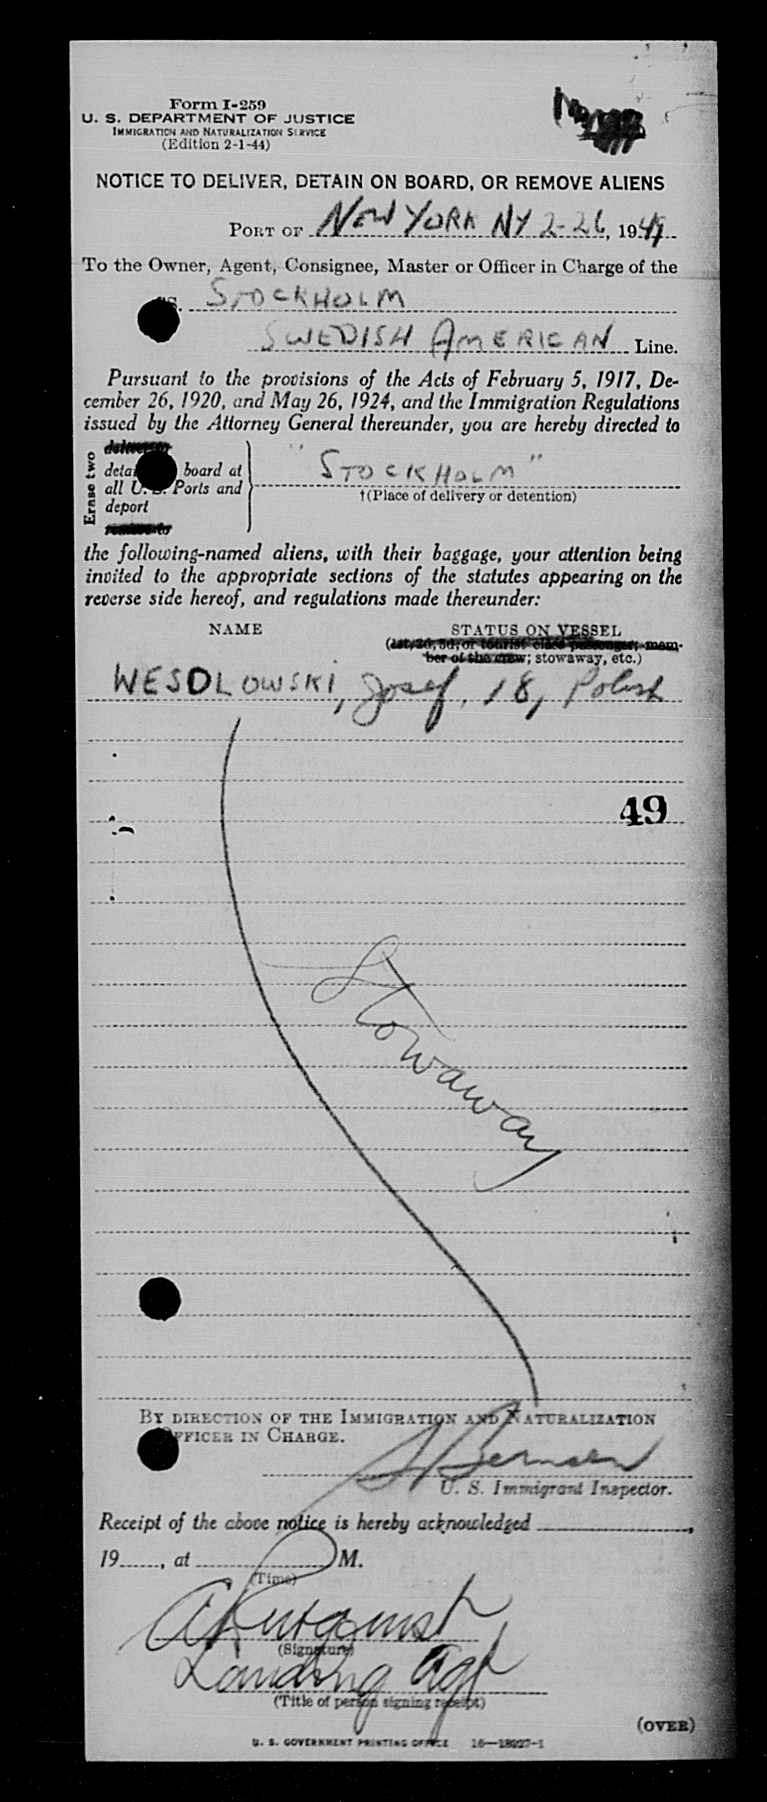 Form I-259
U. S. DEPARTMENT OF JUSTICE
IMMIGRATION AND NATURALIZATION SERVICE
(Edition 2-1-44)
NOTICE TO DELIVER, DETAIN ON BOARD, OR REMOVE ALIENS
PORT OF NEW YORK NY 2-26, 1949
To the Owner, Agent, Consignee, Master or Officer in Charge of the
SS. STOCKHOLM
SWEDISH AMERICAN Line.
Pursuant to the provisions of the Acts of February 5, 1917, De-
cember 26, 1920, and May 26, 1924, and the Immigration Regulations
issued by the Attorney General thereunder, you are hereby directed to
Erase two
deliver to
detain on board at
all U. S. Ports and
deport
remove to
"STOCKHOLM"
†(Place of delivery or detention)
the following-named aliens, with their baggage, your attention being
invited to the appropriate sections of the statutes appearing on the
reverse side hereof, and regulations made thereunder:
NAME STATUS ON VESSEL
(1st, 2d, 3d, or tourist class passenger; mem-
ber of the crew; stowaway, etc.)
WESOLOWSKI, Josef, 18, Polish
49
Stowaway
BY DIRECTION OF THE IMMIGRATION AND NATURALIZATION
OFFICER IN CHARGE.
U. S. Immigrant Inspector.
Receipt of the above notice is hereby acknowledged
19, at M.
(Time)
(Signature)
Landing Agt
(Title of person signing receipt)
(OVER)
U. S. GOVERNMENT PRINTING OFFICE 16—18927-1